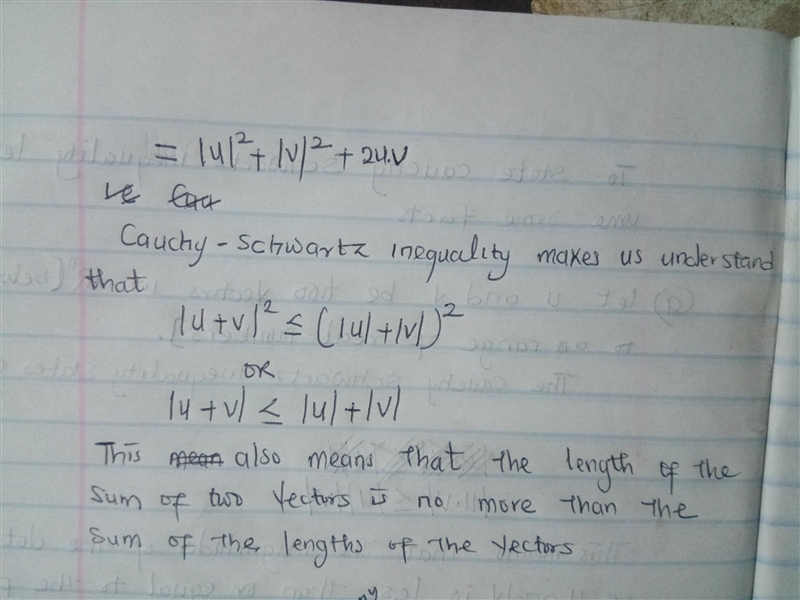 = |u|² + |v|² + 2u.v
Cauchy - Schwartz inequality makes us understand
that
|u + v|² ≤ (|u| + |v|)²
OR
|u + v| ≤ |u| + |v|
This mean also means that the length of the
sum of two vectors is no more than the
sum of the lengths of the vectors